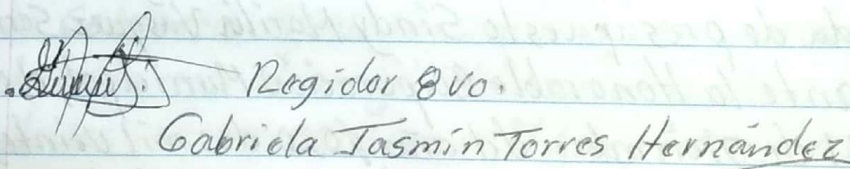 Regidor 8vo.
Gabriela Jasmín Torres Hernández